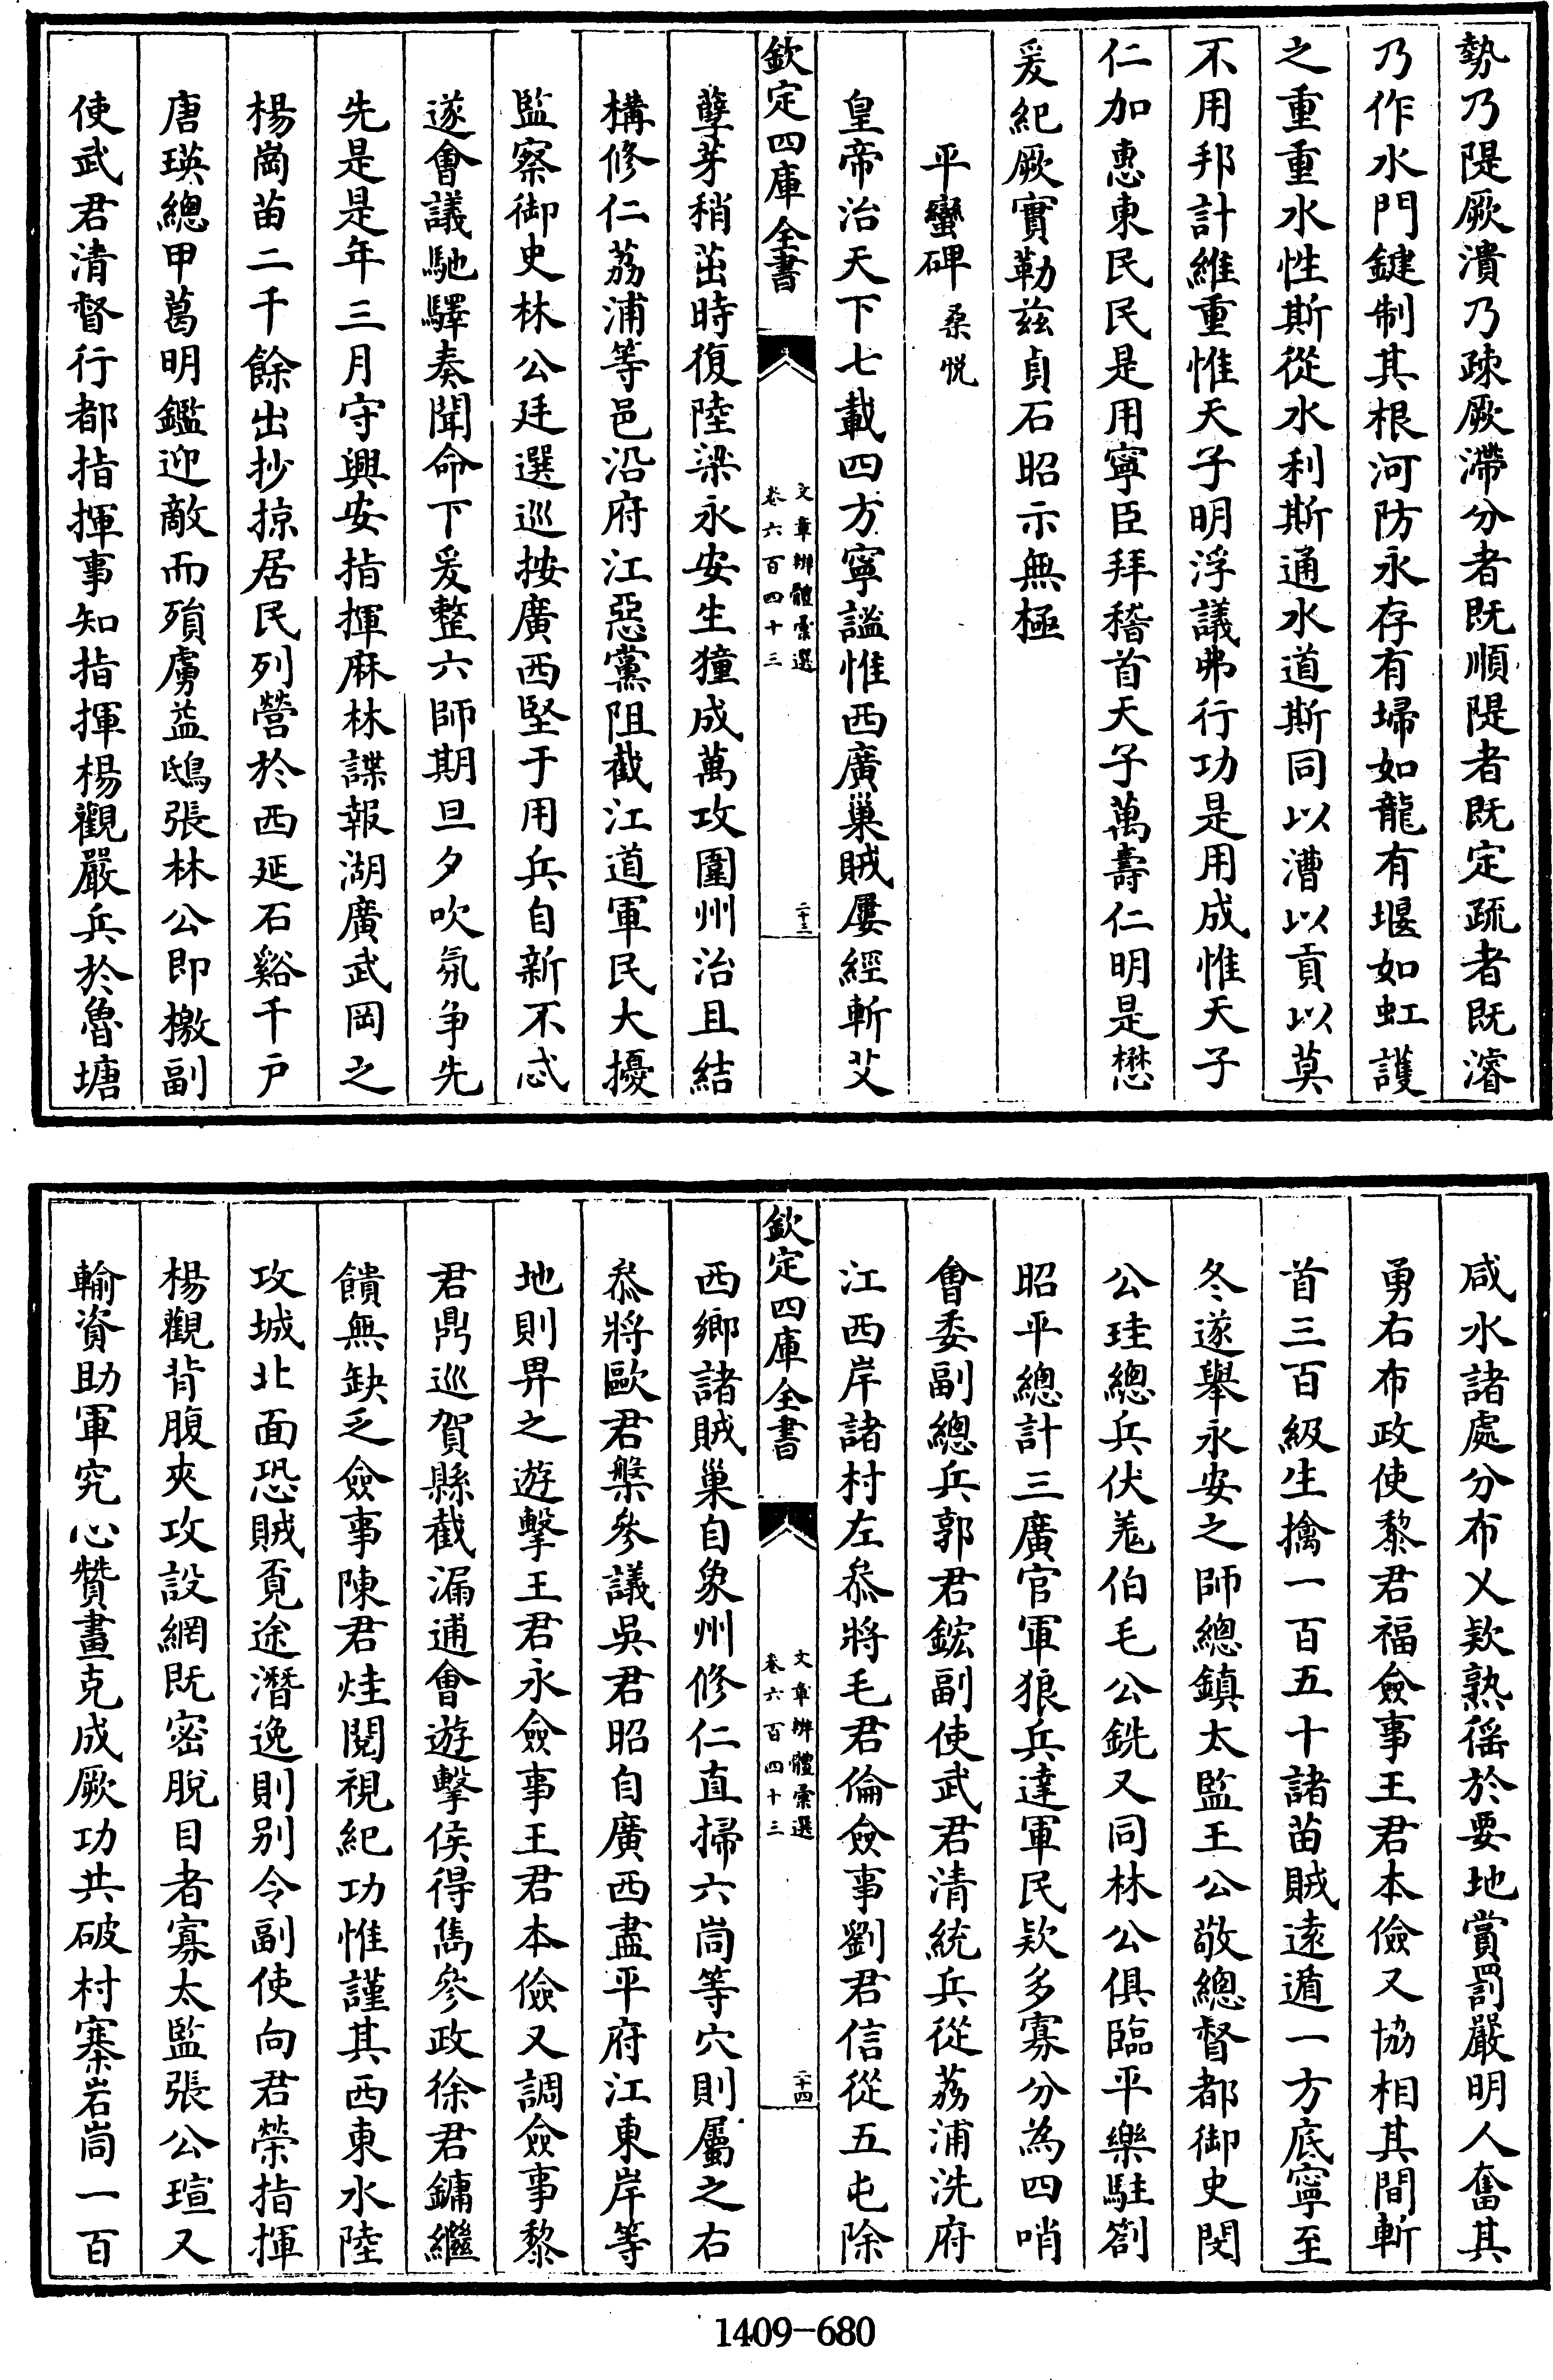 勢乃隄厥潰乃疎厥滯分者既順隄者既定疏者既濬
乃作水門鍵制其根河防永存有埽如龍有堰如虹護
之重重水性斯從水利斯通水道斯同以漕以貢以莫
不用邦計維重惟天子明浮議弗行功是用成惟天子
仁加惠東民民是用寧臣拜稽首天子萬壽仁明是懋
爰紀厥實勒兹貞石昭示無極
平蠻碑 桑悅
皇帝治天下七載四方寧謐惟西廣巢賊屢經斬艾
欽定四庫全書
文章辨體彚選
卷六百四十三
二十三
孽芽稍茁時復陸梁永安生獞成萬攻圍州治且結
構修仁荔浦等邑沿府江惡黨阻截江道軍民大擾
監察御史林公廷選巡按廣西堅于用兵自新不忒
遂會議馳驛奏聞命下爰整六師期旦夕吹氛争先
先是是年三月守興安指揮麻林諜報湖廣武岡之
楊崗苗二千餘出抄掠居民列營於西延石谿千户
唐瑛總甲葛明鑑迎敵而殞虜益鴟張林公即檄副
使武君清督行都指揮事知指揮楊觀嚴兵於魯塘
咸水諸處分布乂欵熟徭於要地賞罰嚴明人奮其
勇右布政使黎君福僉事王君本儉又協相其間斬
首三百級生擒一百五十諸苗賊遠遁一方底寧至
冬遂舉永安之師總鎮太監王公敬總督都御史閔
公珪總兵伏羗伯毛公銑又同林公俱臨平樂駐劄
昭平總計三廣官軍狼兵達軍民欵多寡分為四哨
會委副總兵郭君鋐副使武君清統兵從荔浦洗府
江西岸諸村左叅將毛君倫僉事劉君信從五屯除
欽定四庫全書
文章辨體彚選
卷六百四十三
二十四
西鄉諸賊巢自象州修仁直掃六峝等穴則屬之右
叅將歐君槃參議吳君昭自廣西盡平府江東岸等
地則畀之遊擊王君永僉事王君本儉又調僉事黎
君鼎巡賀縣截漏逋會遊擊侯得雋參政徐君鏞繼
饋無缺乏僉事陳君烓閱視紀功惟謹其西東水陸
攻城北面恐賊覔途潛逸則别令副使向君榮指揮
楊觀背腹夾攻設網既密脫目者寡太監張公瑄又
輸資助軍究心贊畫克成厥功共破村寨岩峝一百
1409-680